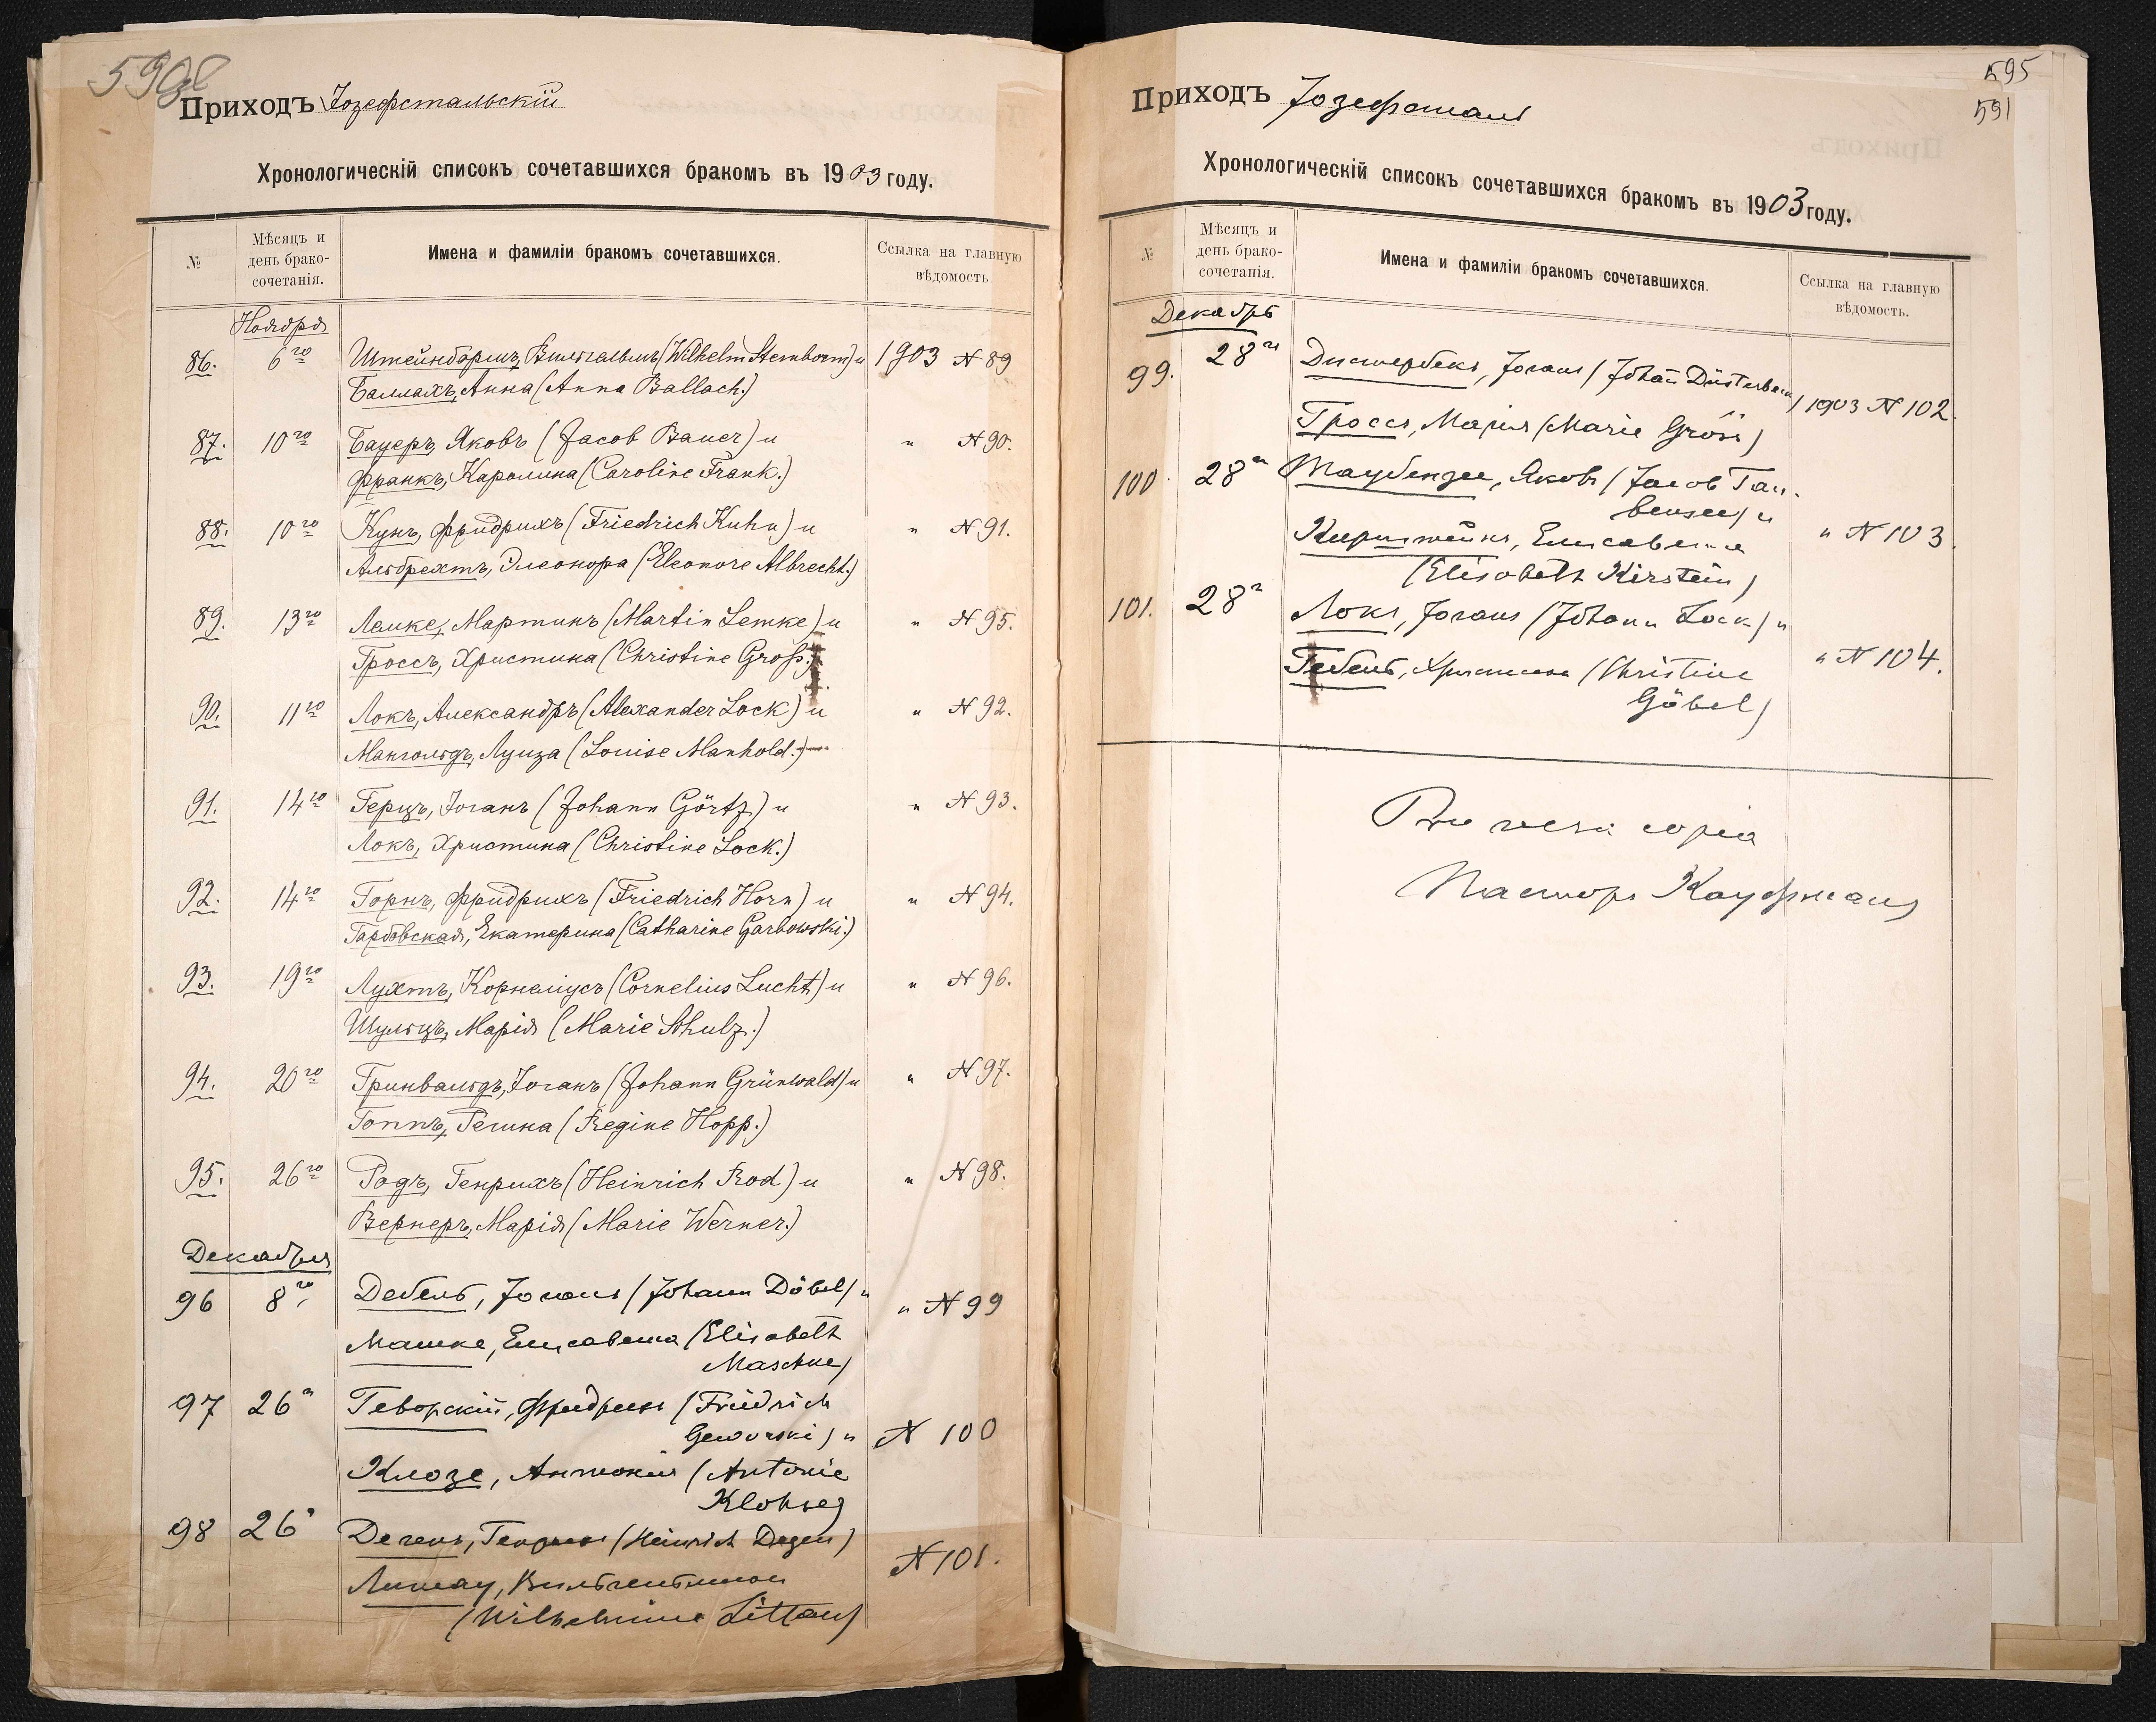 590
Приходъ Іозефстальскій
Хронологическій списокъ сочетавшихся бракомъ въ 1903 году.
№ Мѣсяцъ и день брако-сочетанія. Имена и фамиліи бракомъ сочетавшихся. Ссылка на главную вѣдомость
Ноября
86. 6го Штейнборнъ, Вильгельмъ (Wilhelm Steinborn) и 1903 N 89
Баллахъ, Анна (Anna Ballach.)
87. 10го Бауеръ, Яковъ (Jacob Bauer) и " N 90.
Франкъ, Каролина (Caroline Frank.)
88. 10го Кунъ, Фридрихъ (Friedrich Kuhn) и " N 91.
Альбрехтъ, Элеонора (Eleonore Albrecht.)
89. 13го Лемке, Мартинъ (Martin Lemke) и " N 95.
Гроссъ, Христина (Christine Groß.)
90. 11го Локъ, Александръ (Alexander Lock) и " N 92.
Мангольдъ, Луиза (Louise Manhold.)
91. 14го Герцъ, Іоганъ (Johann Görtz) и " N 93.
Локъ, Христина (Christine Lock.)
92. 14го Горнъ, Фридрихъ (Friedrich Horn) и " N 94.
Гарбовская, Екатерина (Catharine Garbowski.)
93. 19го Лухтъ, Корнеліусъ (Cornelius Lucht) и " N 96.
Шульцъ, Марія (Marie Schulz.)
94. 20го Гринвальдъ, Іоганъ (Johann Grünwald) и " N 97.
Гоппъ, Регина (Regine Hopp.)
95. 26го Родъ, Генрихъ (Heinrich Rod) и " N 98.
Вернеръ, Марія (Marie Werner.)
Декабря
96 8го Дебель, Іоганъ (Johann Döbel) и " N 99
Машке, Елисавета (Elisabeth
Maschke)
97 26го Геворскій, Фридрихъ (Friedrich
Geworski) и N 100
Клозе, Антонія (Antonie
Klohse)
98 26 Дегенъ, Генрихъ (Heinrich Degen)
Литтау, Вильгельмина N 101.
(Wilhelmine Littau)
595
591
Приходъ Іозефсталь
Хронологическій списокъ сочетавшихся бракомъ въ 1903 году.
№ Мѣсяцъ и день брако-сочетанія. Имена и фамиліи бракомъ сочетавшихся. Ссылка на главную вѣдомость.
Декабрь
99. 28го Дистербекъ, Іоганъ (Johann Düsterbeck) 1903 N 102.
Гроссъ, Марія (Marie Gross)
100 28го Таубензее, Яковъ (Jacob Tau-
bensee) и
Кирштейнъ, Елисавета " N 103.
(Elisabeth Kirstein)
101. 28го Локъ, Іоганъ (Johann Lock) и
Гебель, Христина (Christine " N 104.
Göbel)
Pro vera copia
Пасторъ Кауфманъ